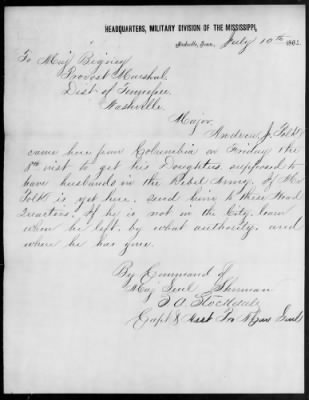 HEADQUARTERS, MILITARY DIVISION OF THE MISSISSIPPI,
Nashville, Tenn., July 10th 186
To Maj Bigney
Provost Marshal
Dist of Tennessee
Nashville
Major
Andrew J. Polk
came here from Columbia on Friday the
8th inst to get his Daughters, supposed to
have husbands in the Rebel Army. If Mr
Polk is yet here, send him to these Head
Quarters. If he is not in the City, learn
when he left, by what authority, and
where he has gone.
By Command of
Maj Genl Sherman
Capt & Asst Pro M Genl